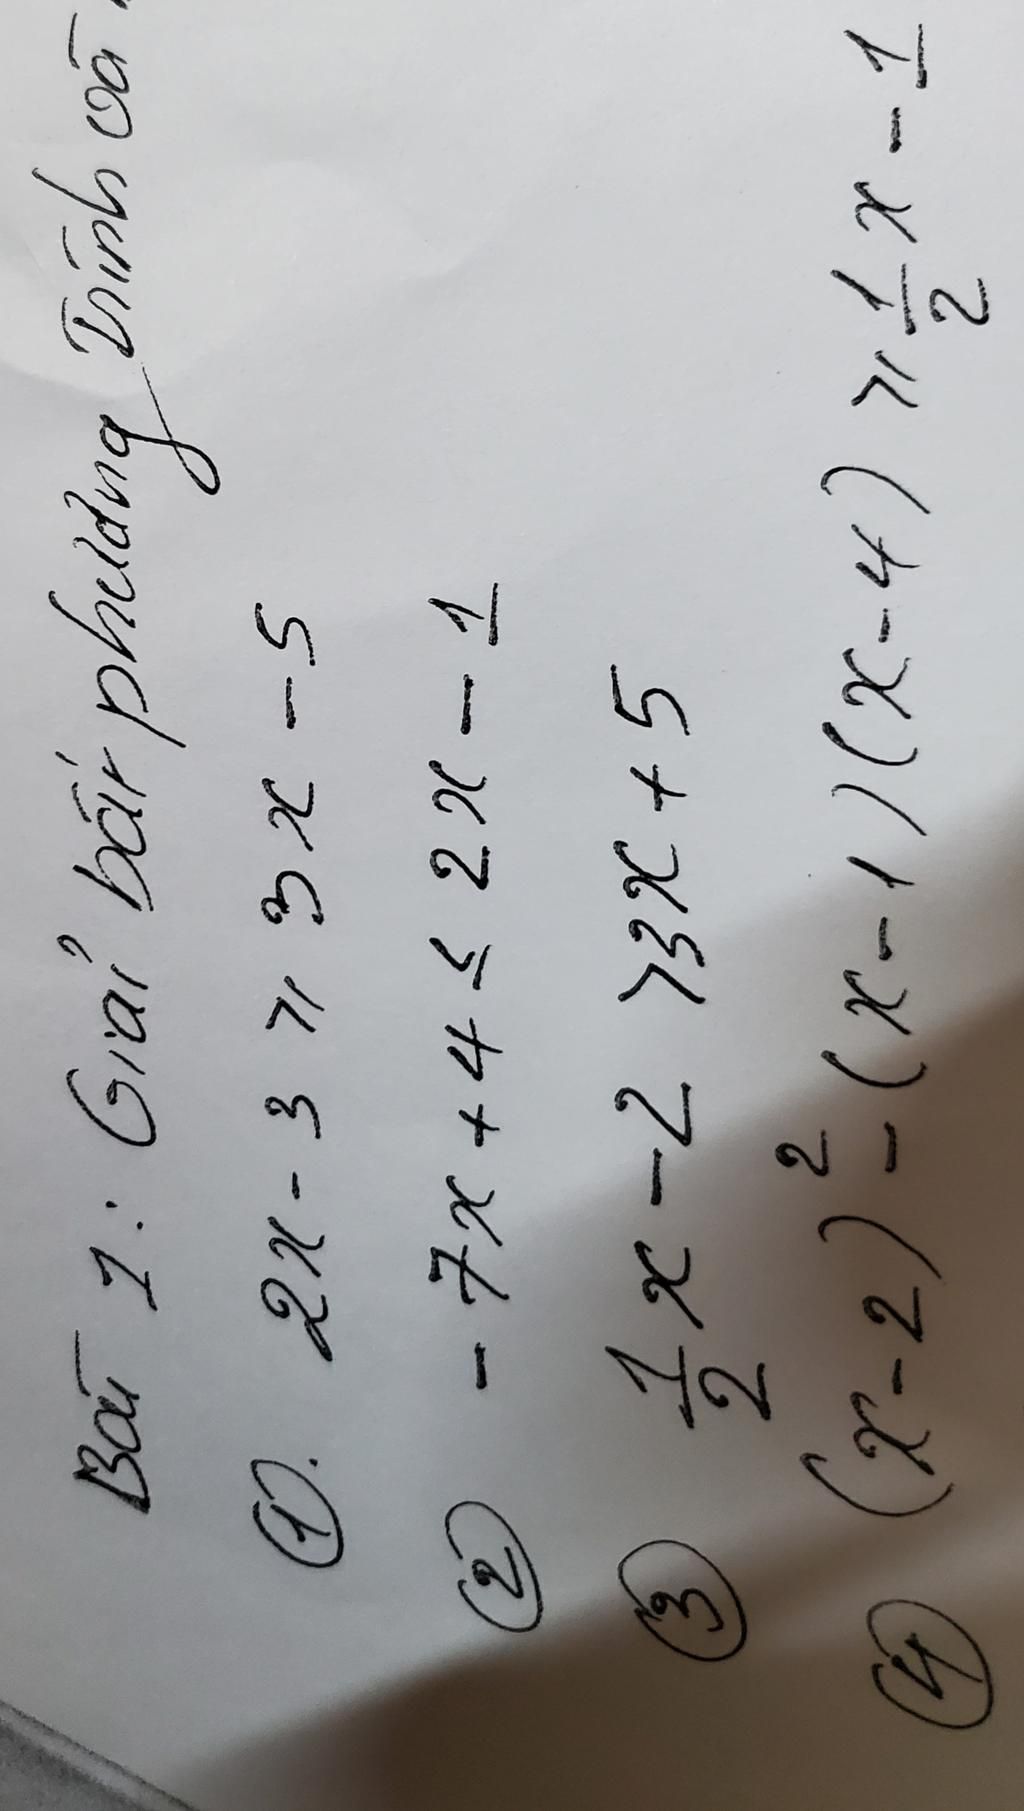 Bài 1: Giải bất phương trình và
① . 2x - 3 ⩾ 3x - 5
② - 7x + 4 ≤ 2x - 1
③ 1/2 x - 2 > 3x + 5
④ (x - 2)² - (x - 1)(x - 4) ⩾ 1/2 x - 1